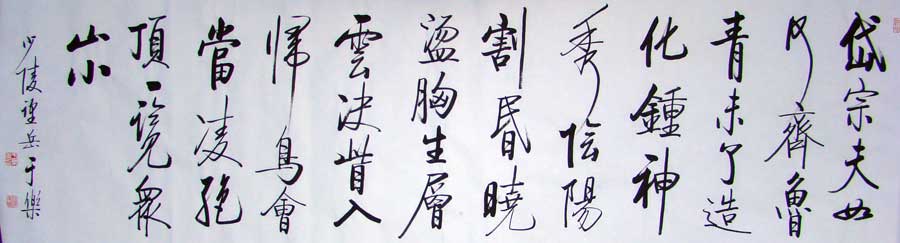 岱宗夫如
何齊魯
青未了造
化鍾神
秀陰陽
割昬曉
盪胸生層
雲决眥入
帰鳥會
當凌絕
頂一覽衆
山小
少陵望岳 于樂